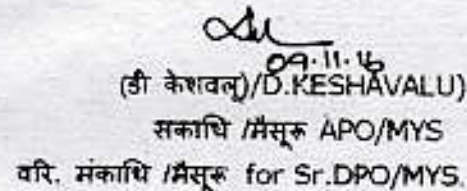 09.11.16
(डी केशवलू)/D.KESHAVALU)
सकाधि /मैसूरू APO/MYS
वरि. मंकाधि /मैसूरू for Sr.DPO/MYS